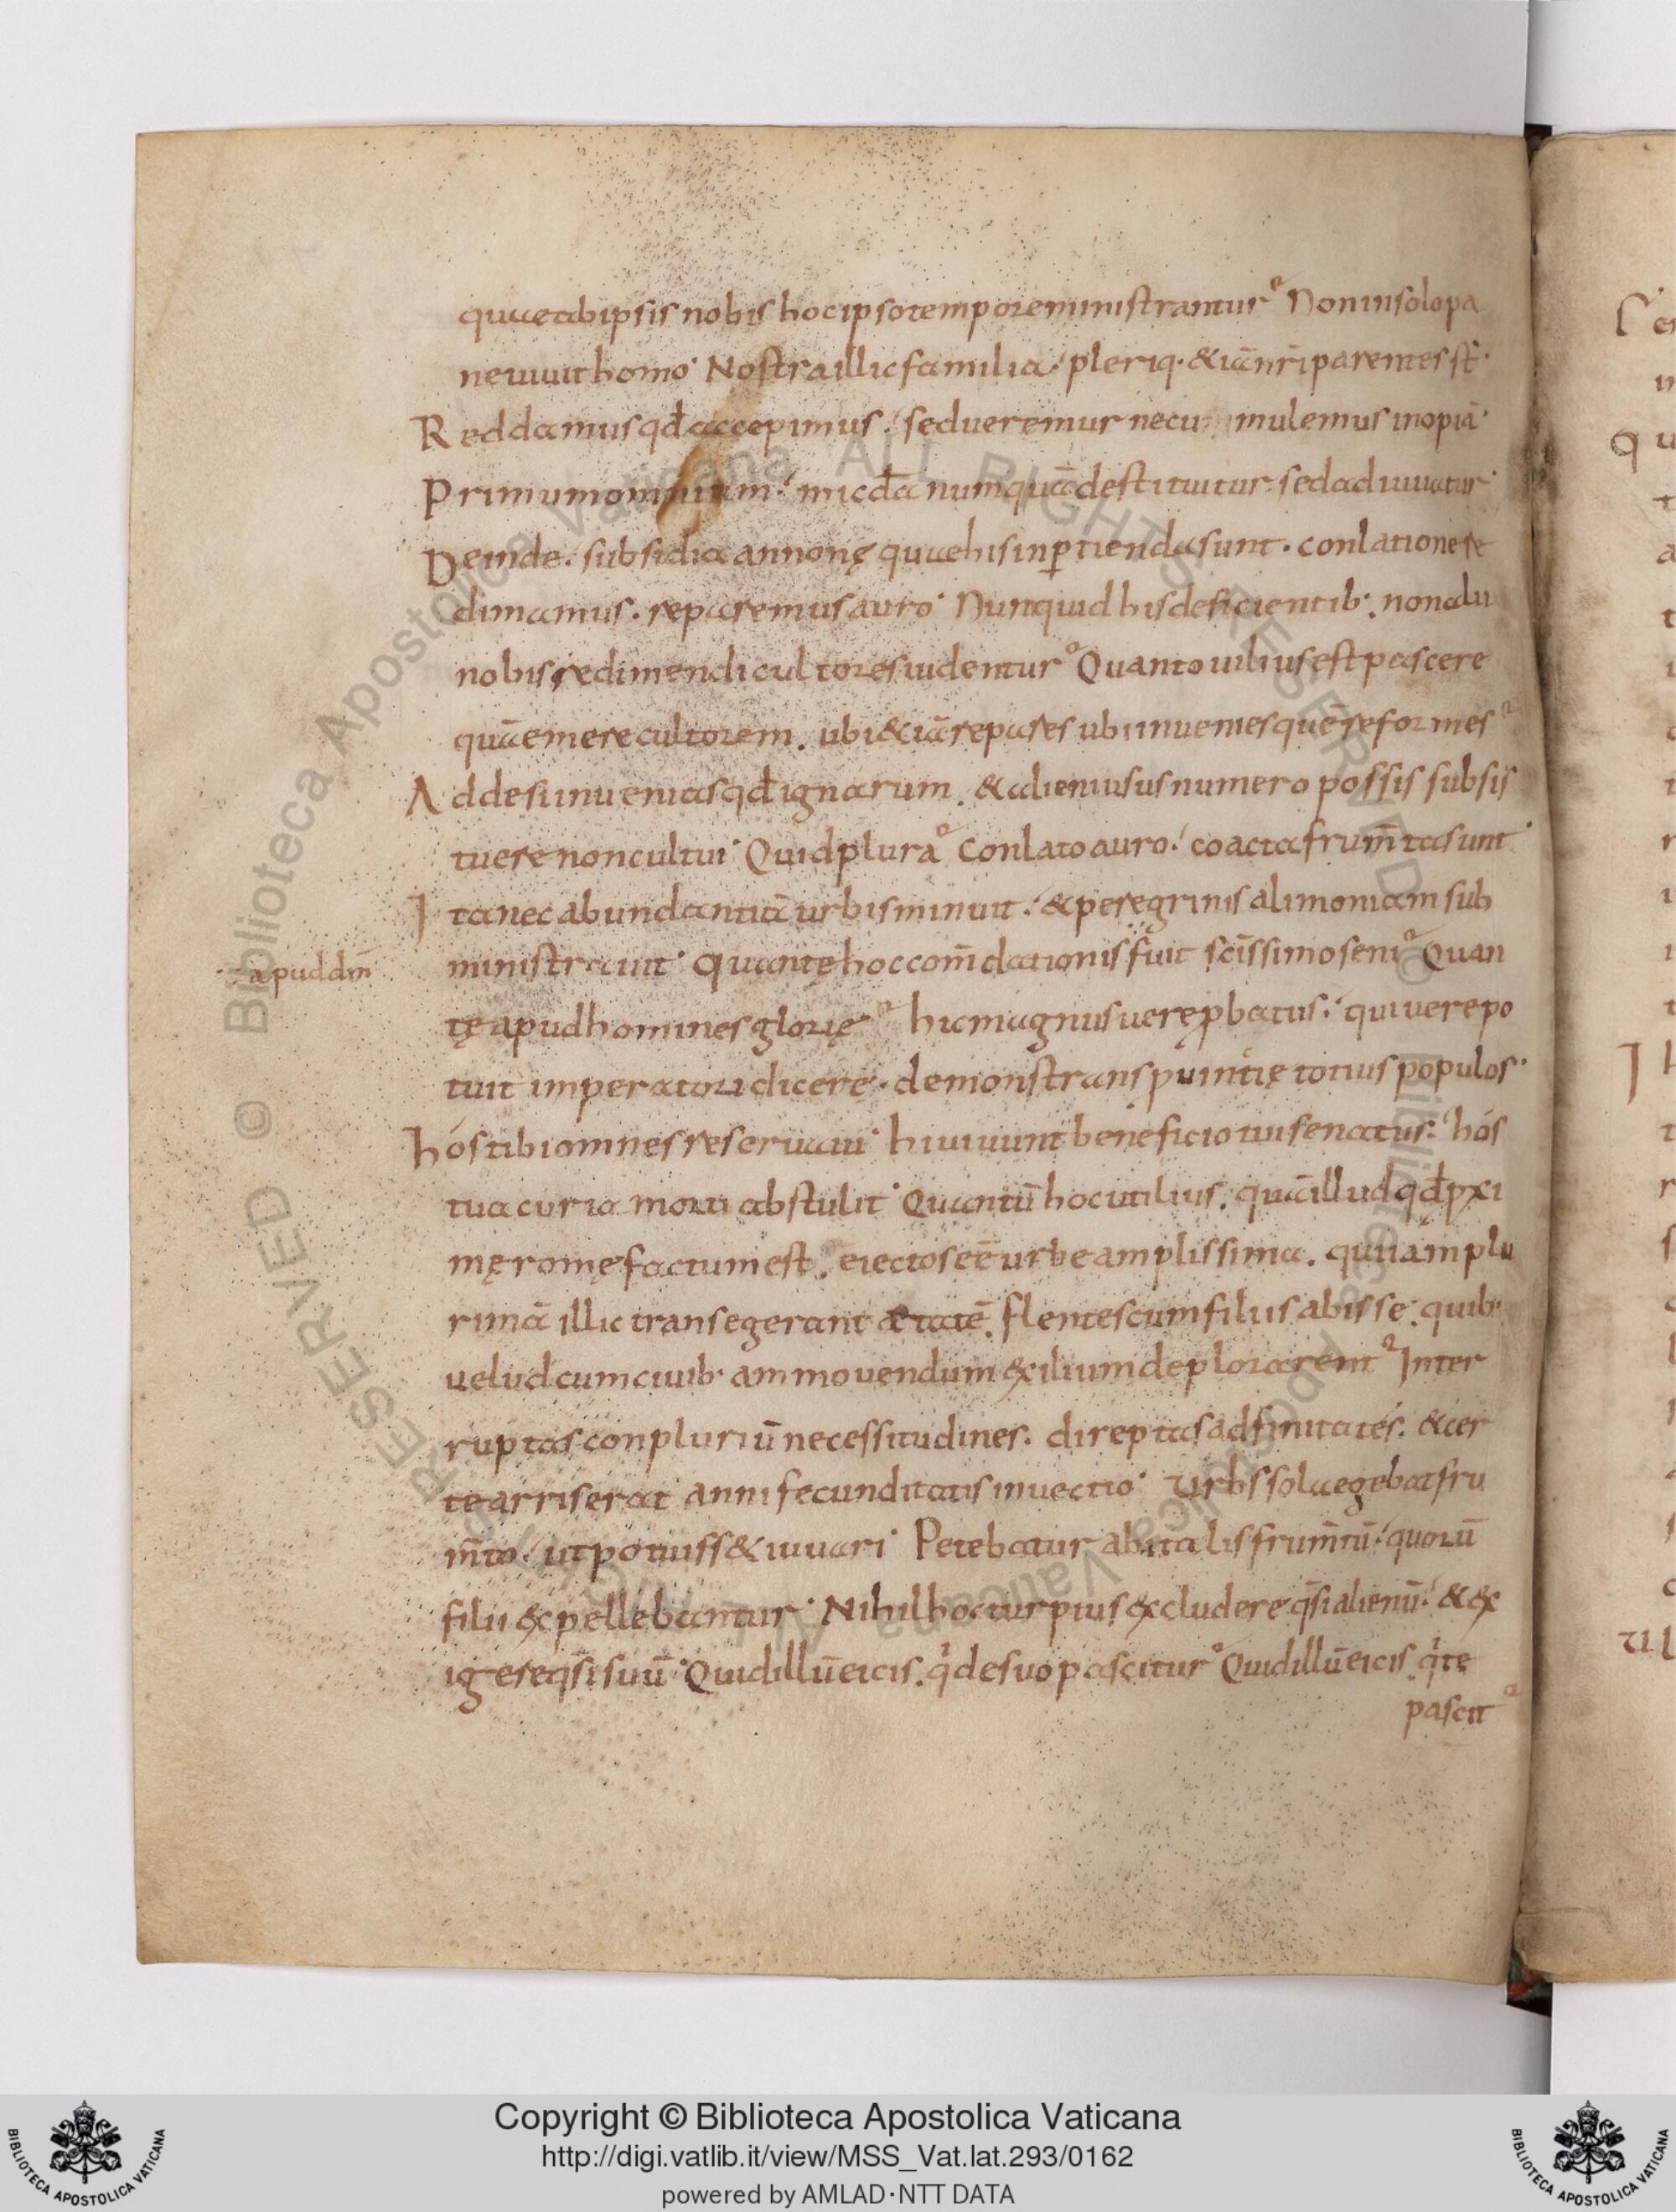 quae ab ipsis nobis hoc ipso tempore ministrantur? Non in solo pa
ne uiuit homo· Nostra illic familia· pleriq· & iā nr̄i parentes st̄·
Reddamus qđ accepimus· sed ueremur ne cu mulemus inopiā·
Primum omnium· micđa numquā destituitur· sed adiuuatur·
Deinde· subsidia annonę quae his inꝑtienda sunt· conlatione re
dimamus· reparemus auro· Nunquid his deficientib·, non alii
nobis redimendi cultores uidentur? Quanto uilius est pascere
quā emere cultorem· ubi & iā repares ubi inuenies quē reformes?
Adde si inuenias qđ ignarum· & alieni usus numero possis subsis
tuere non cultui· Quid plura? Conlato auro· coacta frum̄ta sunt·
Ita nec abundantiā urbis minuit· & peregrinis alimoniam sub
apud dm̄
ministrauit· Quantę hoc com̄dationis fuit sc̄issimo seni? Quan
tę apud homines glorię? hic magnus uere ꝓbatus· qui uere po
tuit imperatori dicere· demonstrans puintię totius populos·
hós tibi omnes reseruaui· hi uiuunt beneficio tui senatus· hós
tua curia morti abstulit· Quantū hoc utilius· quā illud qđ pxi
mę romę factum est· eiectos eē urbe amplissima· qui iam plu
rimā illic transegerant ætatē· flentes cum filiis abisse· quib·
uelud cum ciuib· ammouendum exilium deplorarent? Inter
ruptas conpluriū necessitudines· direptas adfinitates· & cer
te arriserat anni fecunditatis inuectio· Urbs sola egebat fru
m̄to· ut potuiss& iuuari· Petebatur ab italis frum̄tū· quorū
filii expellebantur· Nihil hoc turpius excludere q̄si alienū· & ex
igere q̄si suū· Quid illū eicis· qͥ de suo pascitur? Quid illū eicis qͥ te
pascit?
Copyright © Biblioteca Apostolica Vaticana
http://digi.vatlib.it/view/MSS_Vat.lat.293/0162
powered by AMLAD·NTT DATA
BIBLIOTECA APOSTOLICA VATICANA
BIBLIOTECA APOSTOLICA VATICANA